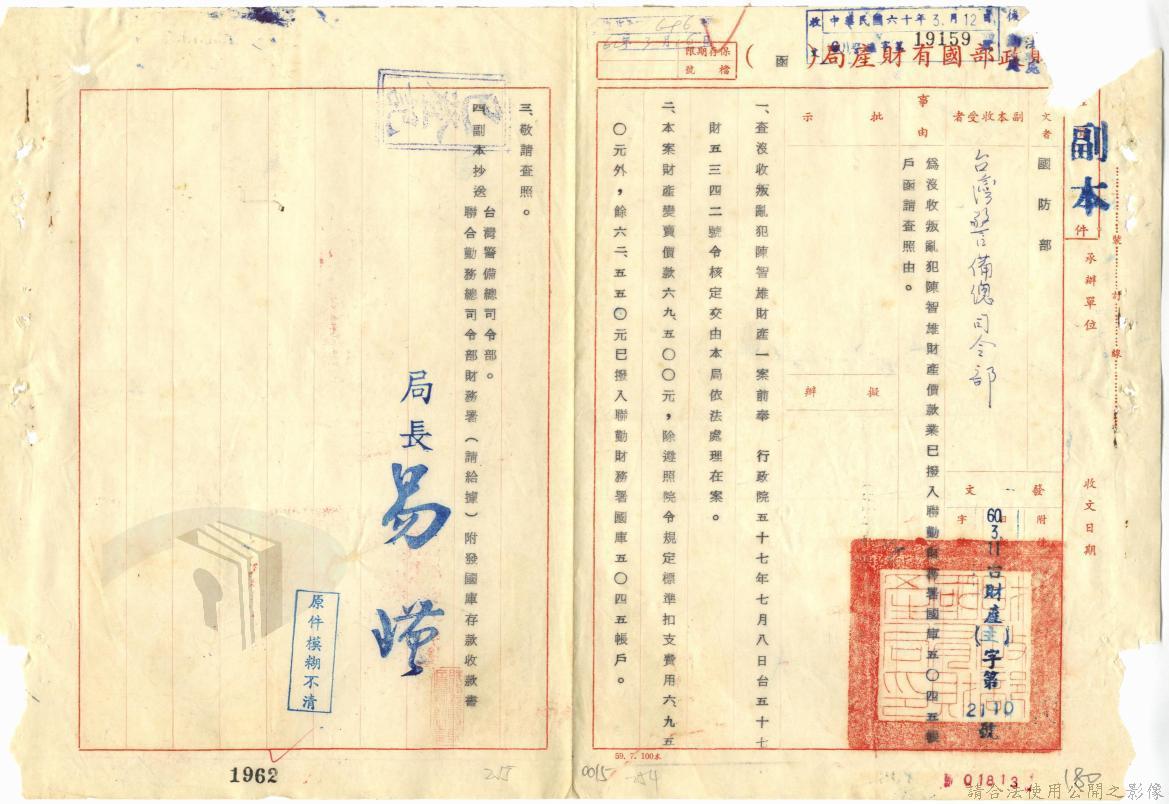 財政部國有財產局(函)
保存期限
檔號
收 中華民國六十年3.月12日
19159
副本
件
承辦單位
收文日期
文者
國防部
副本收受者
台灣警備總司令部
發文
附件
字
60.3.11台財產(主)字第2110號
事由
為沒收叛亂犯陳智雄財產價款業已撥入聯勤財務署國庫五〇四五帳
戶函請查照由。
批示
擬辦
一、查沒收叛亂犯陳智雄財產一案前奉 行政院五十七年七月八日台五十七
財五三四二號令核定交由本局依法處理在案。
二、本案財產變賣價款六九、五〇〇元,除遵照院令規定標準扣支費用六、九五
〇元外,餘六二、五五〇元已撥入聯勤財務署國庫五〇四五帳戶。
三、敬請查照。
四、副本抄送
台灣警備總司令部。
聯合勤務總司令部財務署(請給據)附發國庫存款收款書
局長
原件模糊不清
59. 7. 100本
1962
215
0015
254
01813
180
請合法使用公開之影像